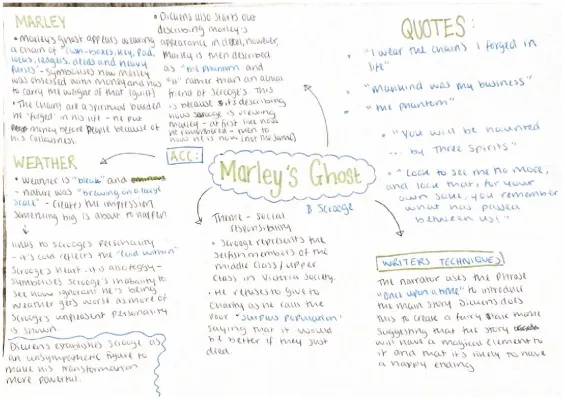 MARLEY
• Marley's ghost appears wearing
a chain of "cash-boxes, key, pad,
locks, ledgers, deeds and heavy
purses" - symbolises how Marley
was obsessed with money and has
to carry the weight of that (guilt)
• The chains are a spiritual burden
he "forged" in his life - he put
money before people because of
his callousness.
WEATHER
• Weather is "bleak" and
- nature was "brewing on a large
scale" - creates the impression
something big is about to happen
links to Scrooge's personality
- it's cold reflects the "cold within"
Scrooge's heart - it is also foggy -
symbolises Scrooge's inability to
see how ignorant he's being
weather gets worst as more of
Scrooge's unpleasant personality
is shown.
Dickens establishes Scrooge as
an unsympathetic figure to
make his transformation
more powerful.
• Dickens also starts out
describing Marley's
appearance in detail, however,
Marley is then described
as "the phantom" and
"it" rather than an actual
friend of Scrooge's. This
is because it's describing
how Scrooge is viewing
Marley - at first like how
he remembered - then to
how he is now (not the same)
ACC:
Marley's Ghost
& Scrooge
Theme - Social
responsibility
• Scrooge represents the
selfish members of the
middle class / upper
class in Victorian society.
• He refuses to give to
charity as he calls the
poor "surplus population"
saying that it would
be better if they just
died.
QUOTES:
• "I wear the chains I forged in
life"
• "Mankind was my business"
• "the phantom"
• "You will be haunted
... by three spirits"
• "Look to see me no more,
and look that, for your
own sake, you remember
what has passed
between us!"
WRITERS TECHNIQUES
The narrator uses the phrase
"once upon a time" to introduce
the main story. Dickens does
this to create a fairy tale
suggesting that the story
will have a magical element to
it and that it's likely to have
a happy ending